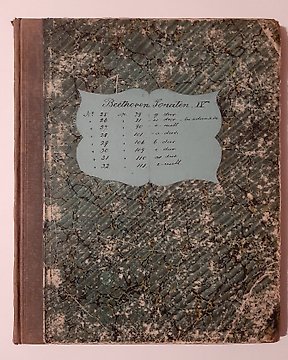 Beethoven Sonaten. IV
No. 25 op. 79 - g dur.
" 26 " 81 - es dur.
" 27 " 90 - e moll
" 28 " 101 - a dur.
" 29 " 106 b dur
" 30 " 109 e dur
" 31 " 110 as dur
" 32 " 111 c moll